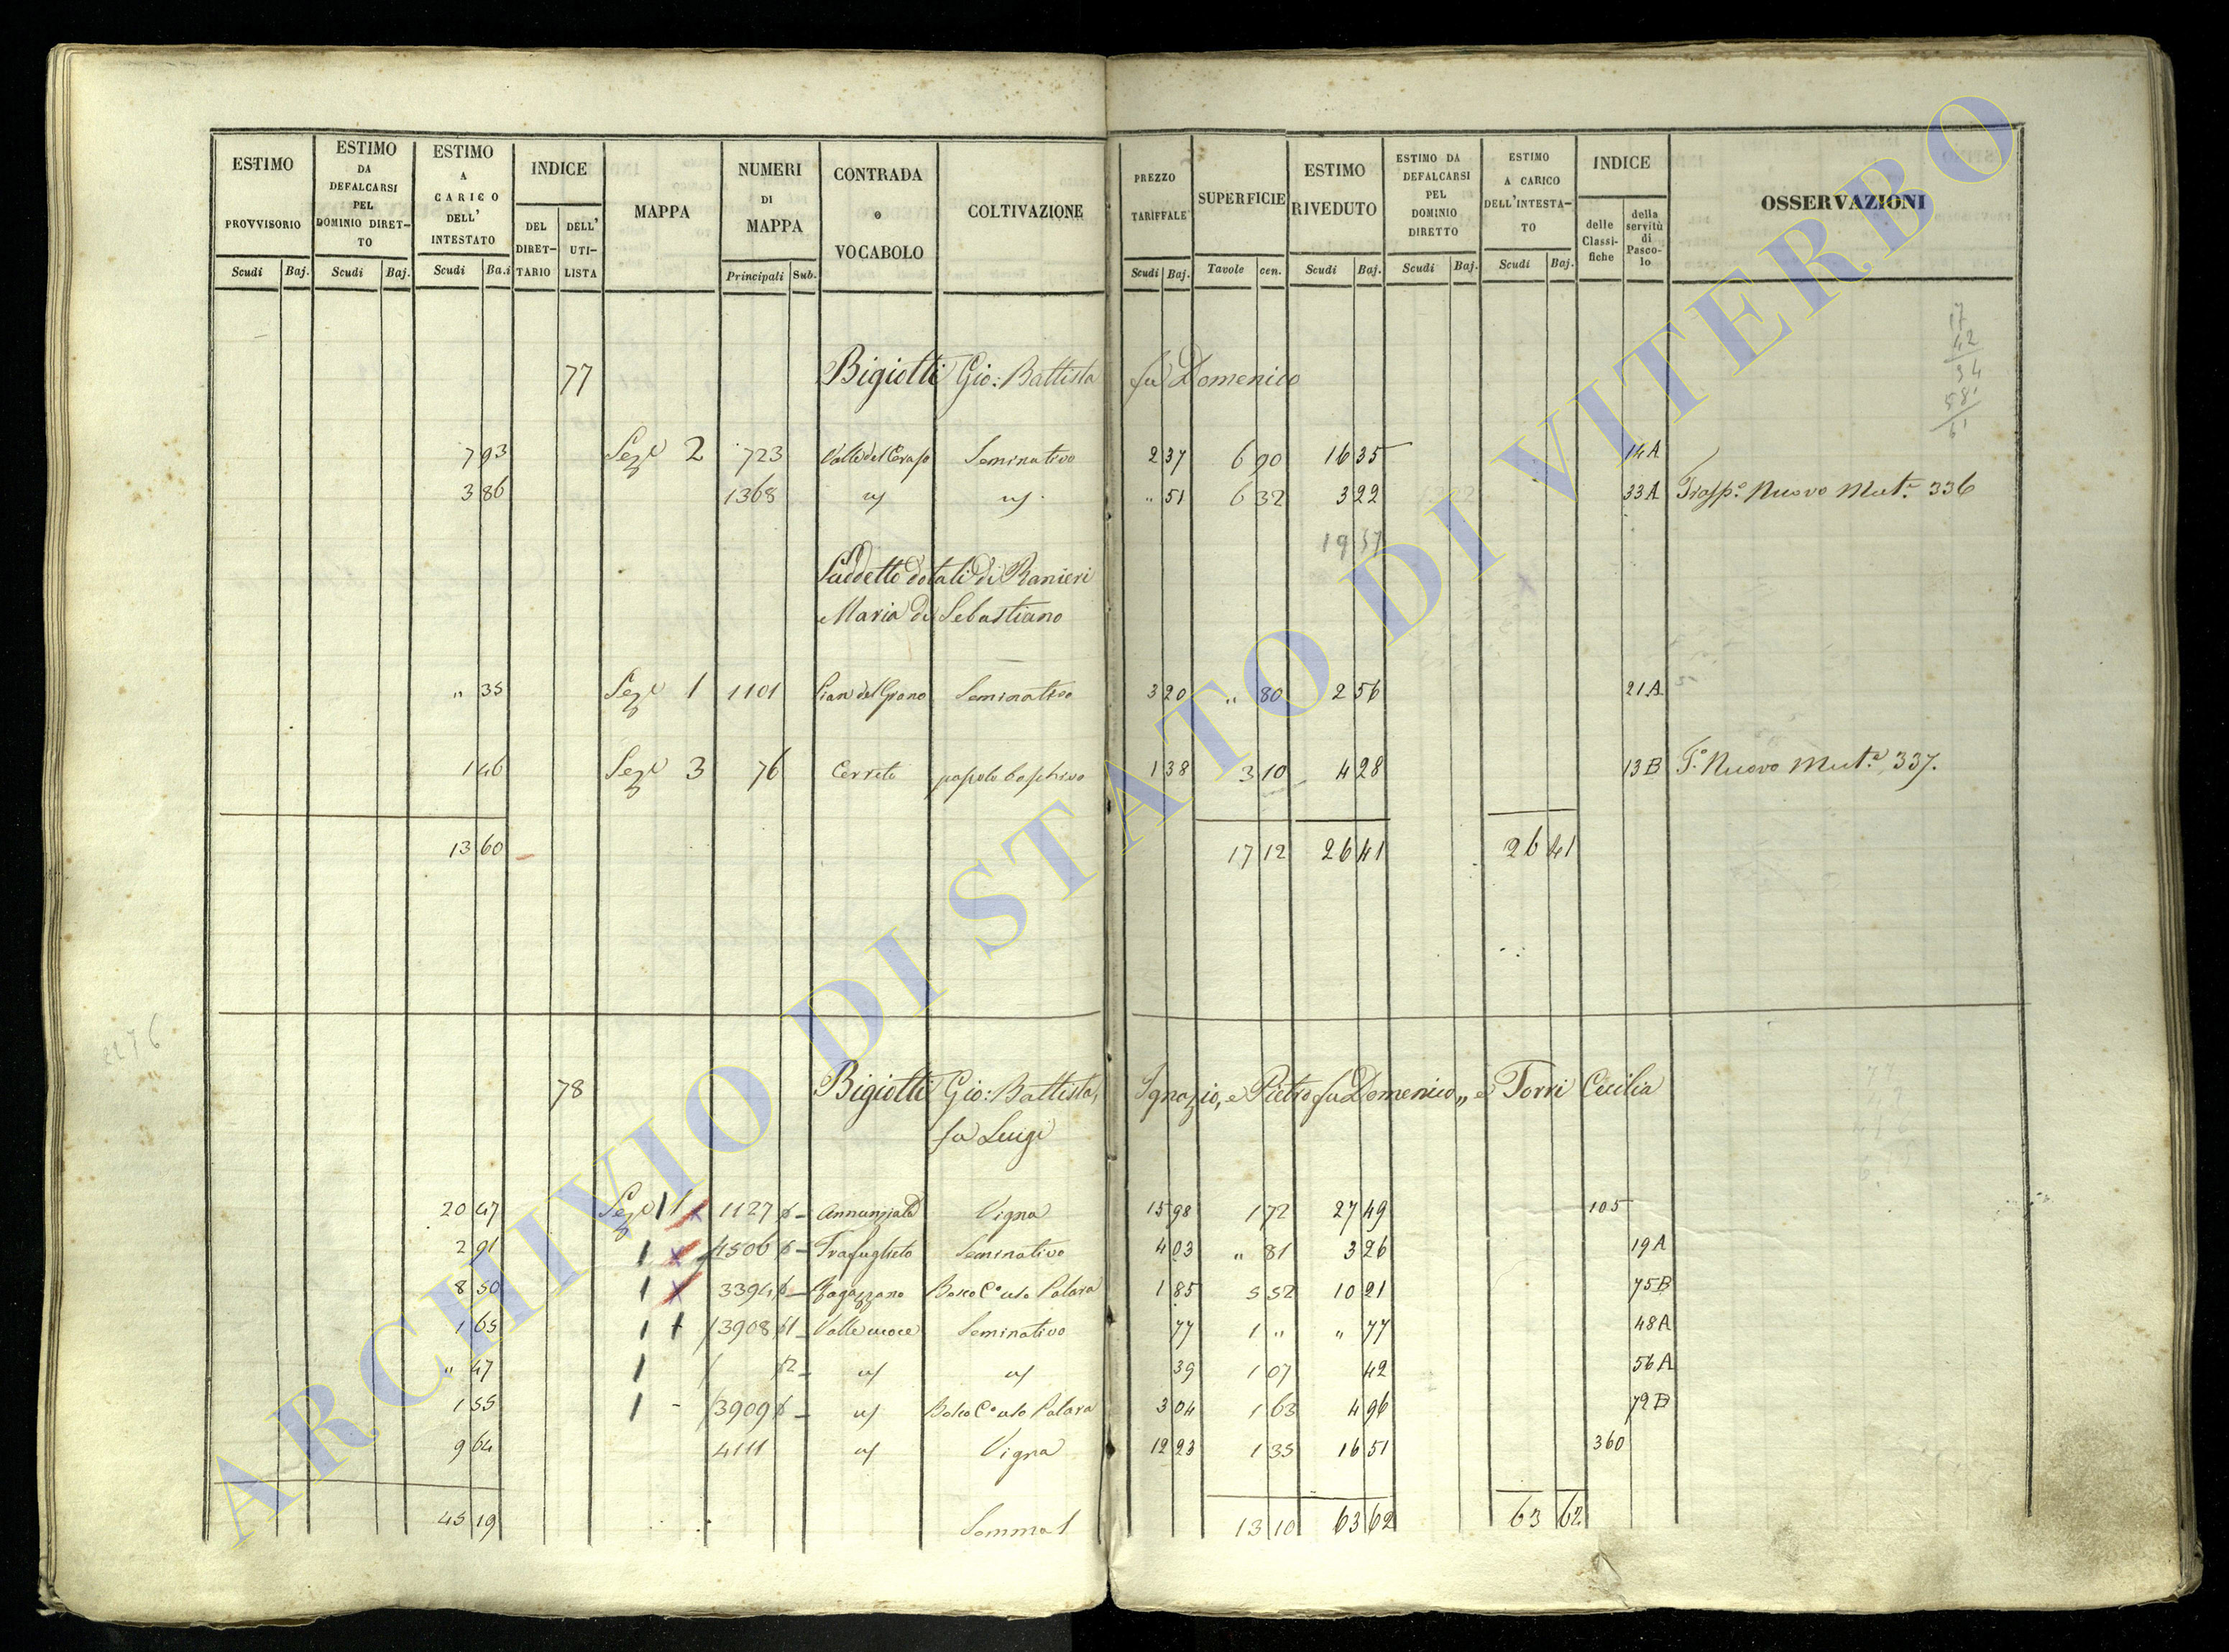 ESTIMO PROVVISORIO | ESTIMO DA DEFALCARSI PEL DOMINIO DIRET-TO | ESTIMO A CARICO DELL' INTESTATO | INDICE | MAPPA | NUMERI DI MAPPA | CONTRADA o VOCABOLO | COLTIVAZIONE | PREZZO TARIFFALE | SUPERFICIE | ESTIMO RIVEDUTO | ESTIMO DA DEFALCARSI PEL DOMINIO DIRETTO | ESTIMO A CARICO DELL'INTESTA-TO | INDICE | OSSERVAZIONI
DEL DIRET-TARIO | DELL' UTI-LISTA | delle Classi-fiche | della servitù di Pasco-lo
Scudi | Baj. | Scudi | Baj. | Scudi | Ba.i | Principali | Sub. | Scudi | Baj. | Tavole | cen. | Scudi | Baj. | Scudi | Baj. | Scudi | Baj.
17
42
34
58
61
77 Bigiotti Gio: Battista fu Domenico
7 93 Sez.e 2 723 Valle del Ceraso Seminativo 2 37 6 90 16 35 14A
3 86 1368 id id " 51 6 32 3 22 33A Trasp.o Nuovo Mut.e 336
19 57
Suddetto dotali di Ranieri
Maria di Sebastiano
" 35 Sez.e 1 1101 Pian del Grano Seminativo 3 20 " 80 2 56 21A
1 46 Sez.e 3 76 Cerreto pascolo boschivo 1 38 3 10 4 28 13B T.o Nuovo Mut.e 337.
13 60 17 12 26 41 26 41
78 Bigiotti Gio: Battista, Ignazio, e Pietro fu Domenico „ e Torri Cecilia
fu Luigi
20 47 Sez.e 1 1127 Annunziata Vigna 15 98 1 72 27 49 105
2 91 1 1506 Trafuglieto Seminativo 4 03 " 81 3 26 19A
8 50 1 3394 Fagazzano Bosco C.o uso Palara 1 85 5 52 10 21 75B
1 65 1 3908 1 Valle Seminativo 77 1 " " 77 48A
" 47 1 2 id id 39 1 07 42 56A
1 55 1 3909 id Bosco C.o uso Palara 3 04 1 63 4 96 79B
9 64 4111 id Vigna 12 23 1 35 16 51 360
45 19 Somma 13 10 63 62 63 62
ARCHIVIO DI STATO DI VITERBO